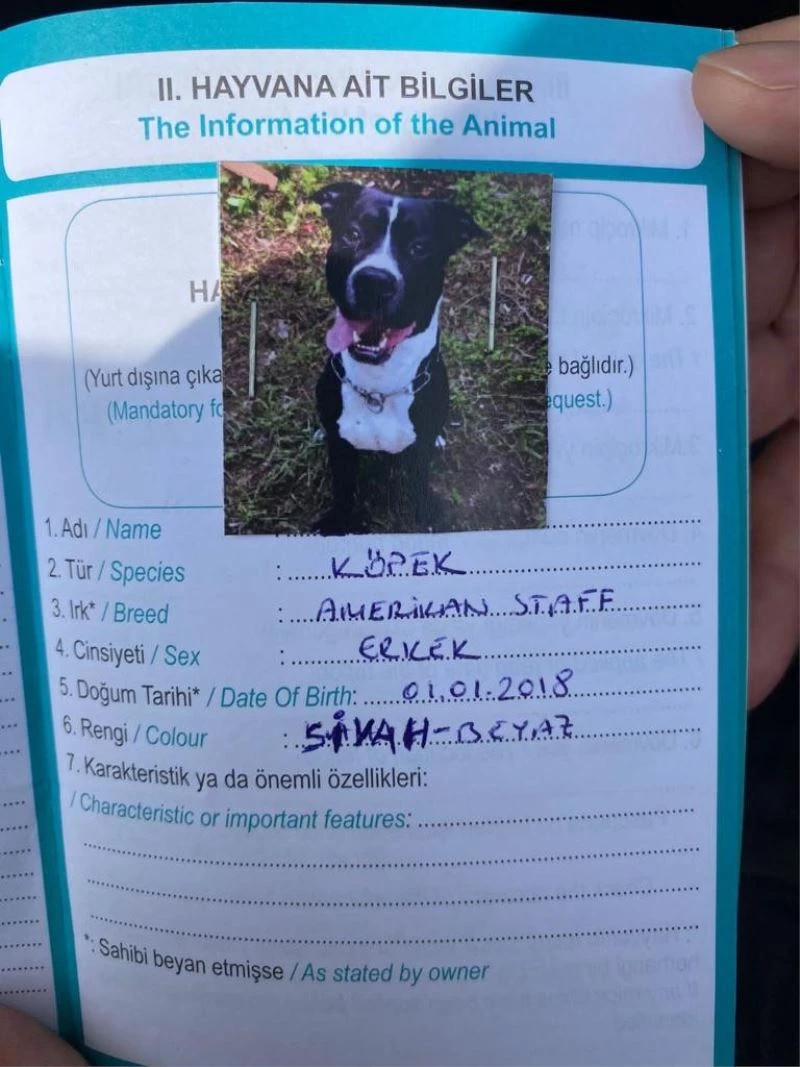 II. HAYVANA AİT BİLGİLER
The Information of the Animal
HA
(Yurt dışına çıka
bağlıdır.)
(Mandatory fo
equest.)
1. Adı / Name
2. Tür / Species : KÖPEK
3. Irk* / Breed : AMERİKAN STAFF
4. Cinsiyeti / Sex : ERKEK
5. Doğum Tarihi* / Date Of Birth: 01.01.2018
6. Rengi / Colour : SİYAH-BEYAZ
7. Karakteristik ya da önemli özellikleri:
/ Characteristic or important features:
*: Sahibi beyan etmişse / As stated by owner